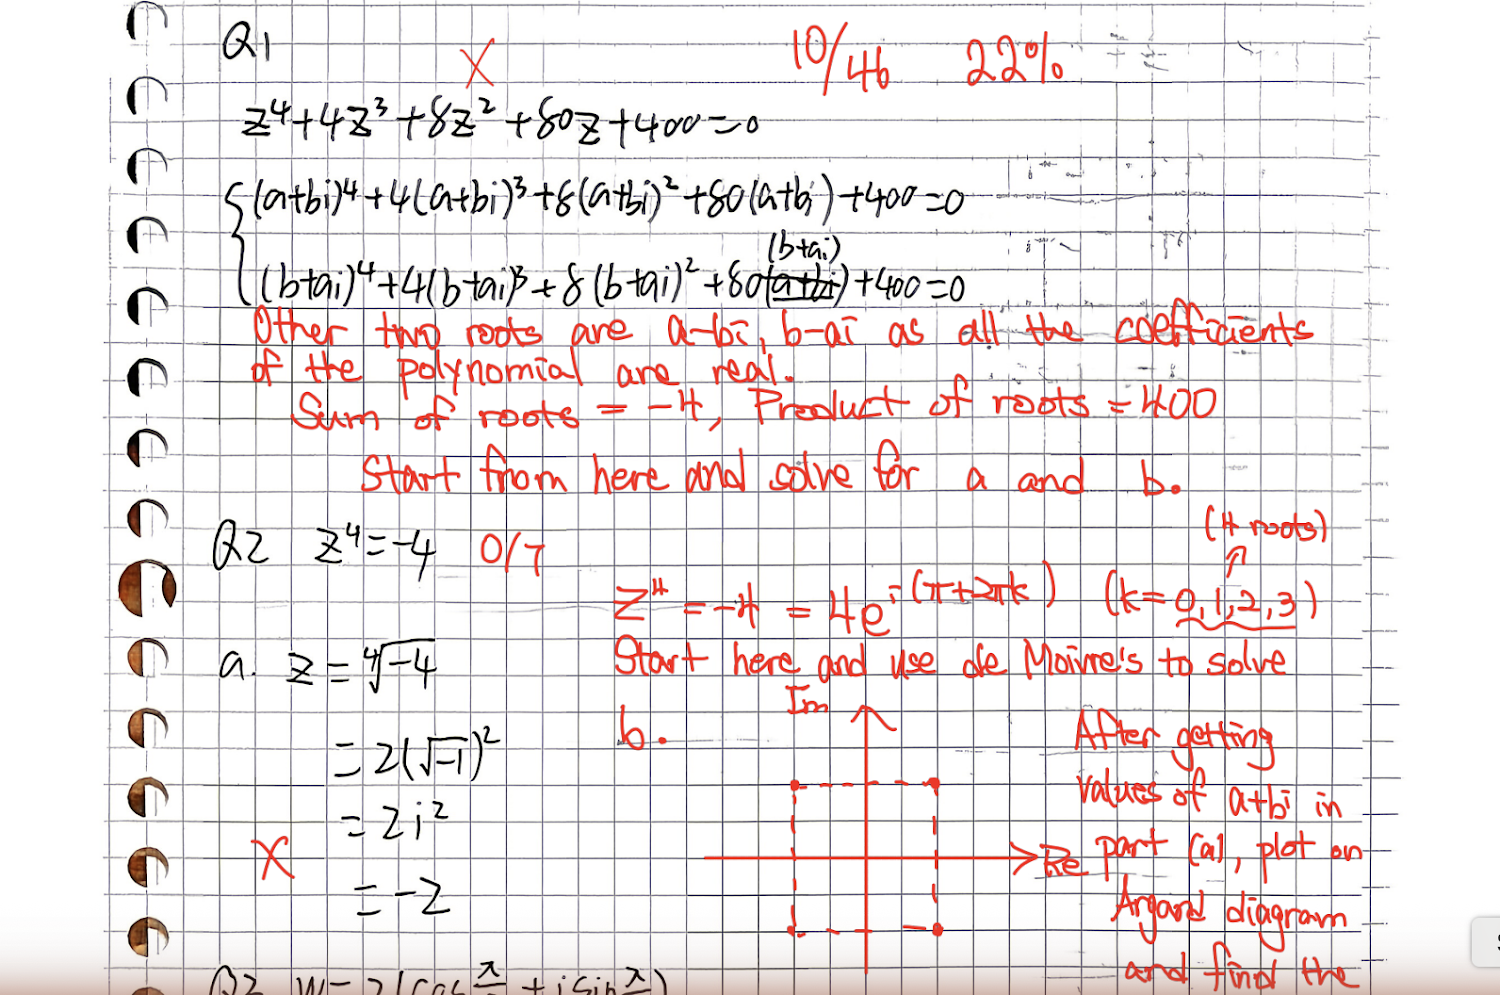 Q1
X
10/46 22%
z⁴+4z³+8z²+80z+400=0
(a+bi)⁴+4(a+bi)³+8(a+bi)²+80(a+bi)+400=0
(b+ai)
(b+ai)⁴+4(b+ai)³+8(b+ai)²+80(a+bi)+400=0
Other two roots are a-bi, b-ai as all the coefficients
of the polynomial are real.
Sum of roots = -4, Product of roots = 400
Start from here and solve for a and b.
(4 roots)
Q2 z⁴=-4 0/7
Z⁴ = -4 = 4e^i(π+2πk) (k=0,1,2,3)
Start here and use de Moivre's to solve
a. z=⁴√-4
=2(√-1)²
=2i²
=-2
X
b.
Im
Re
After getting
values of a+bi in
part (a), plot on
Argand diagram
and find the
Q3 W=2(cos π + i sin π)